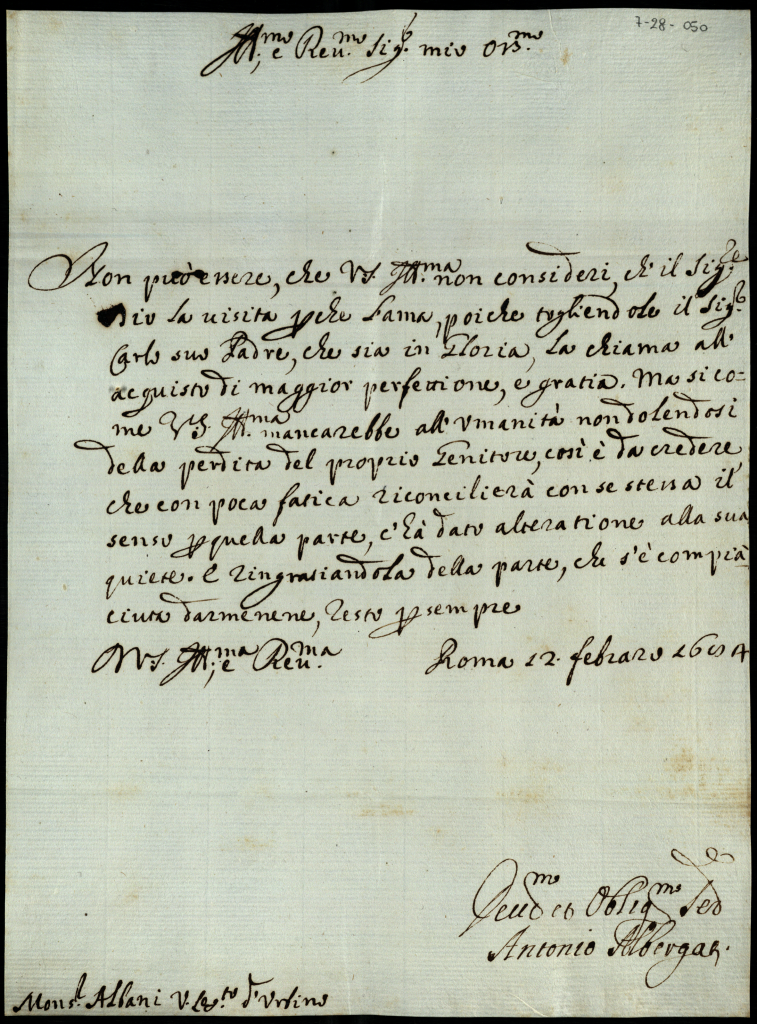 7-28-050
Ill.mo e Reu.mo Sig.r mio Oss.mo
Non può essere, che V.S. Ill.ma non consideri, ch'il Sig.re
Dio la uisita p che l'ama, poiche togliendole il Sig.r
Carlo suo Padre, che sia in Gloria, la chiama all'
acquisto di maggior perfettione, e gratia. Ma si co=
me V.S. Ill.ma mancarebbe all'vmanità non dolendosi
della perdita del proprio Genitore, così è da credere
che con poca fatica riconcilierà con se stessa il
senso p quella parte, c'hà dato alteratione alla sua
quiete. E ringratiandola della parte, che s'è compia
ciuta darmenene, resto p sempre
D V.S. Ill.ma e Reu.ma Roma 12. febraro
Deu.mo et Oblig.mo Ser.
Antonio Albergat.
Mons.r Albani d'Urbino